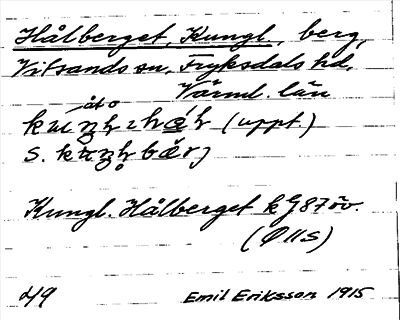 Hålberget, Kungl., berg,
Vitsands sn, Fryksdals hd,
Värml. län
(uppt.)
s.
Kungl. Hålberget k G87öv.
(Ö11S)
d/9 Emil Eriksson 1915